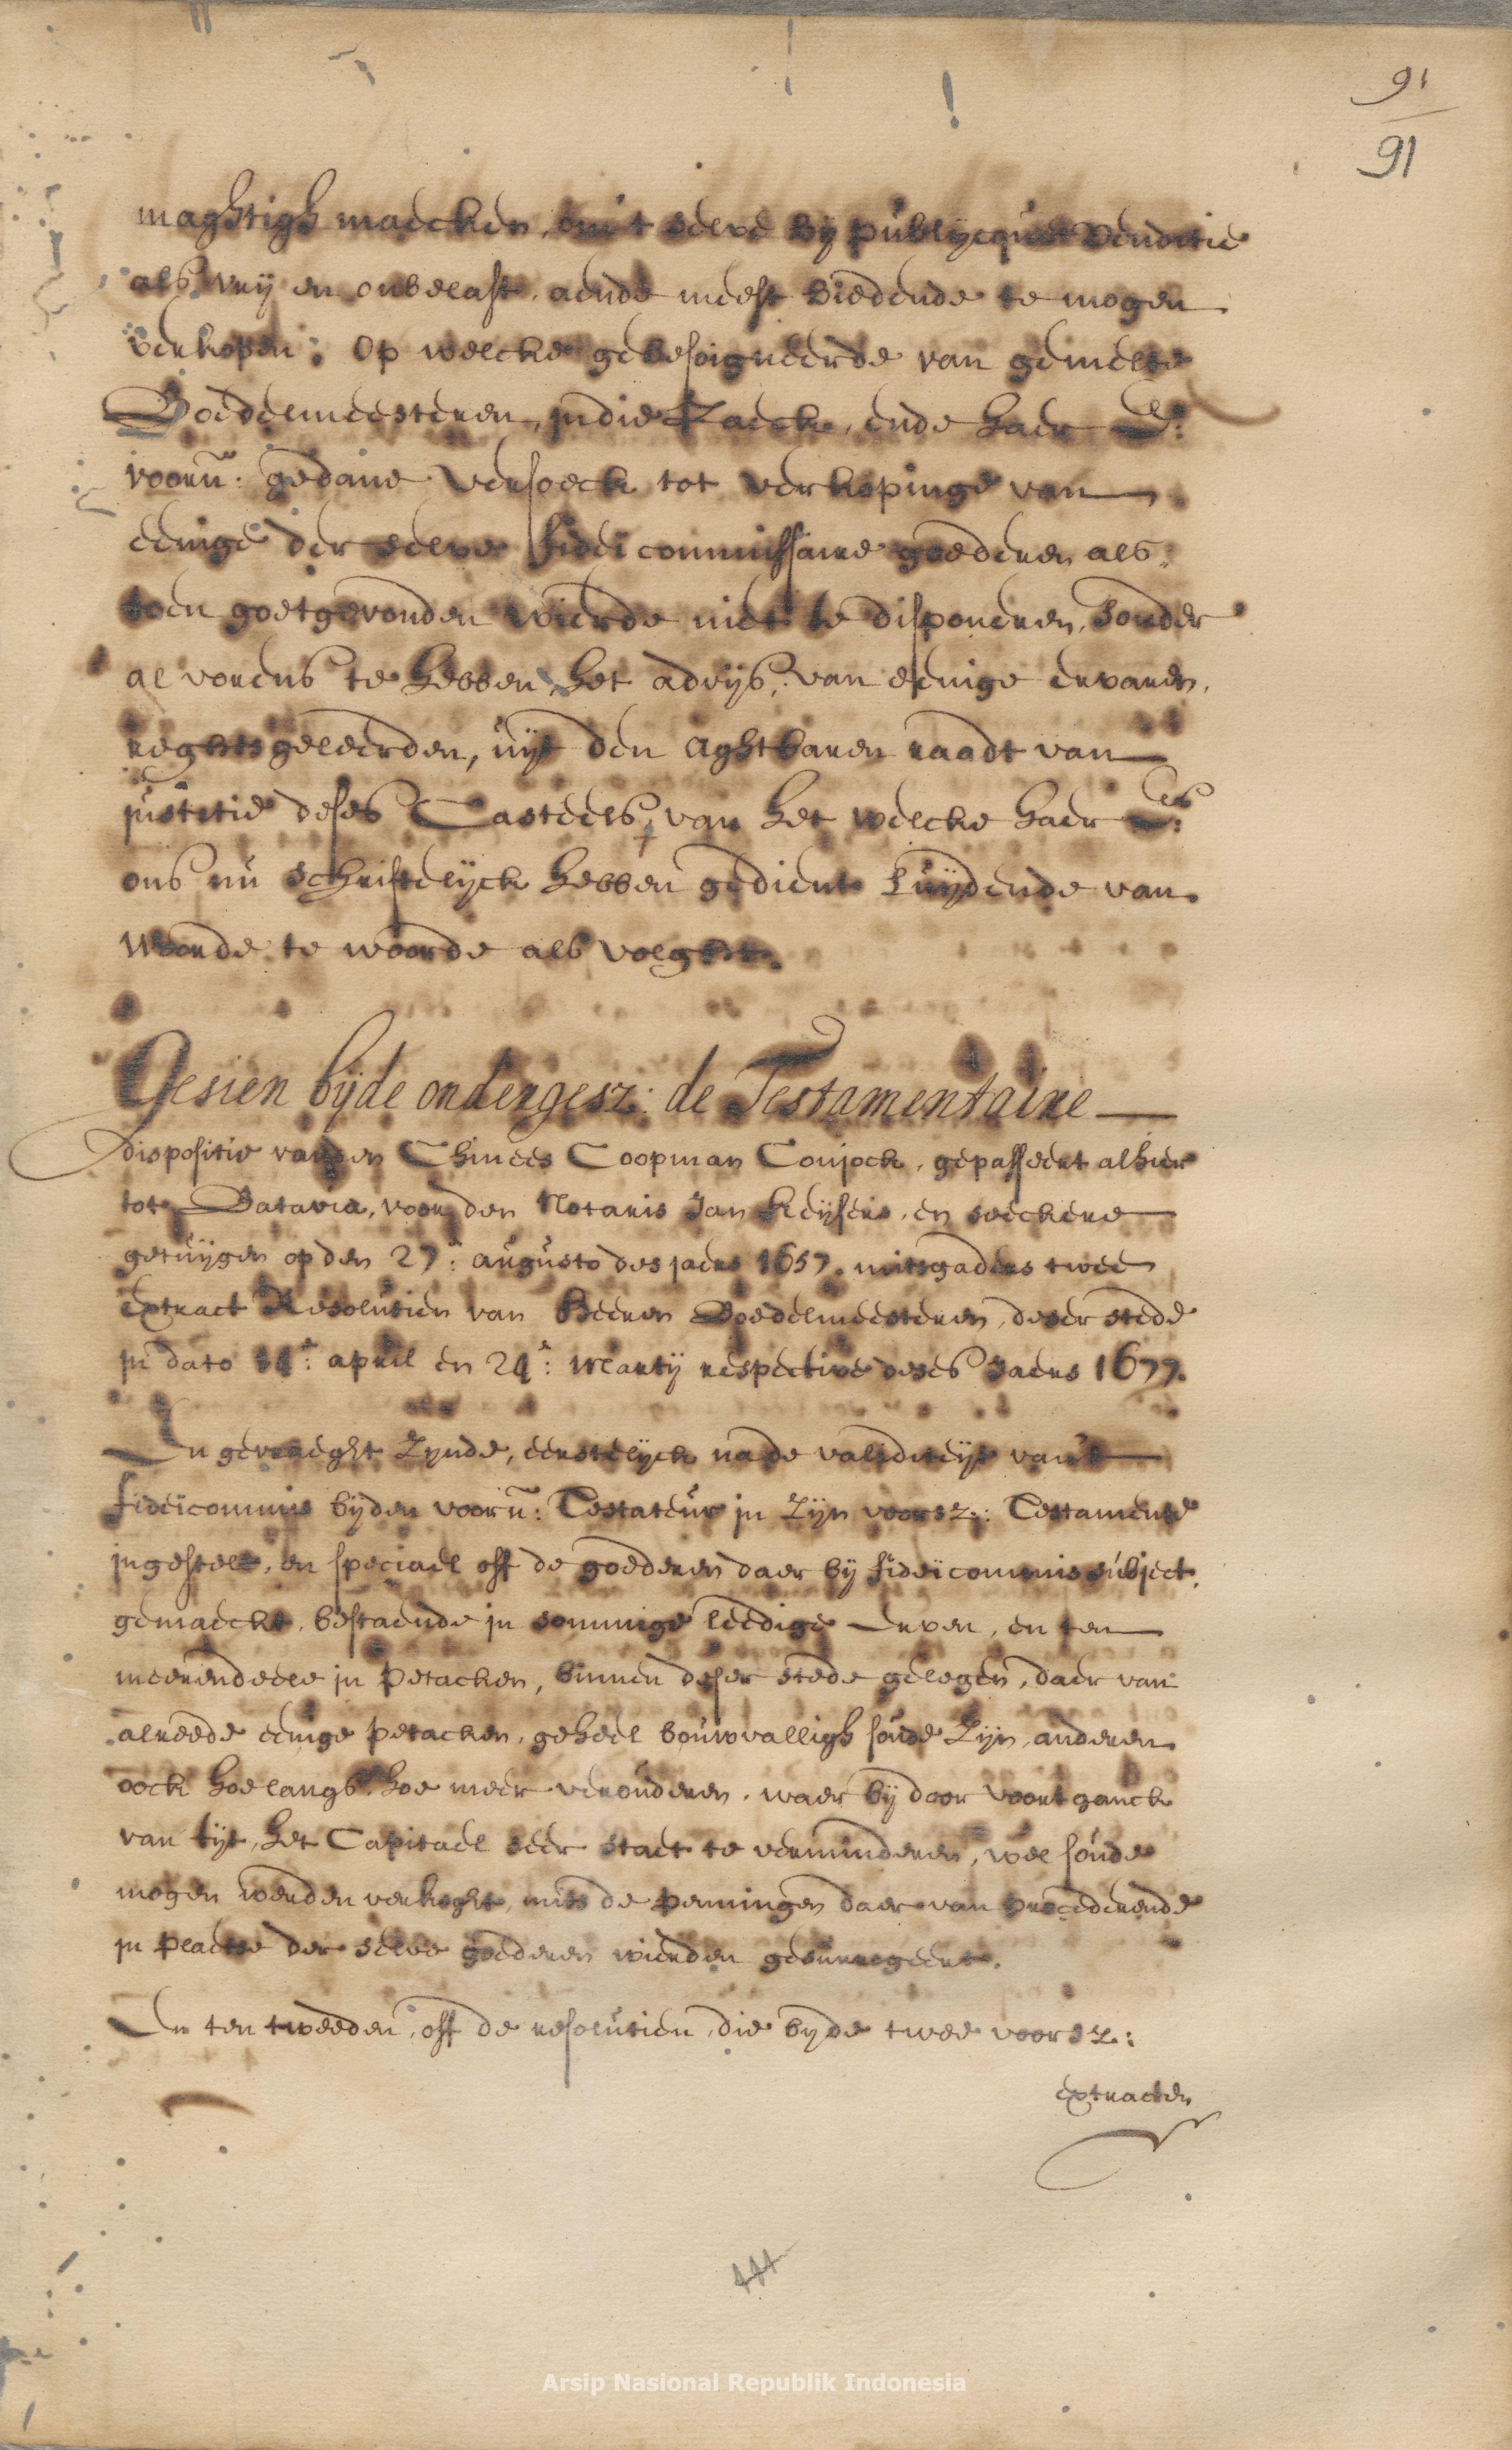 91
91
maghtigh maecken, om't selve bij publijcque venditie
als vrij en onbelast, aende meest biedende te mogen
verkopen; op welcke gebesoigneerde van gemelte
Boedelmeesteren, in die zaeck, ende haer E:
voorn: gedane versoeck tot verkopinge van
eenige der selve fideicommissaire goederen als
toen goetgevonden wierde niet te disponeren, sonder
al vorens te hebben het advijs, van eenige ervaren,
reghtsgeleerden, uijt den aghtbaren raadt van
justitie deses Casteels, van het welcke haer Es:
ons nu schriftelijck hebben gedient luijdende van
woorde te woorde als volght.
Gesien bijde ondergesz: de Testamentaire
dispositie vanden Chinees Coopman Conjock, gepasseert alhier
tot Batavia, voor den Notaris Jan Keijsers, en seeckere
getuijgen op den 27: augusto des jaers 1657. mitsgaders twee
extract Resolutien van Heeren Boedelmeesteren, deser stede
in dato 14: april en 24: martij respective deses Jaers 1677.
En gevraeght zynde, eerstelijck nade validiteijt van't
fideicommis bijden voorn: Testateur in zijn voorsz: Testamente
ingestelt, en speciael off de goederen daer bij fideicommis subject
gemaeckt, bestaende in sommige leedige erven, en ten
meerendeele in petacken, binnen deser stede gelegen, daer van
alreede eenige petacken, geheel bouwvalligh soude zijn, anderen
oock hoe langs hoe meer verouderen, waer bij door voortganck
van tijt, het Capitael seer staet te verminderen, wel soude
mogen werden verkoght, mits de penningen daer van procederende
in plaetse der selve goederen wierden gesurrogeert.
En ten tweeden, off de resolutien, die bijde twee voorsz:
extracten
Arsip Nasional Republik Indonesia